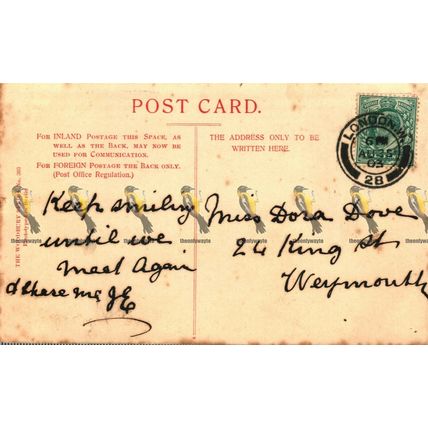 POST CARD.
FOR INLAND POSTAGE THIS SPACE, AS
WELL AS THE BACK, MAY NOW BE
USED FOR COMMUNICATION.
FOR FOREIGN POSTAGE THE BACK ONLY.
(Post Office Regulation.)
THE ADDRESS ONLY TO BE
WRITTEN HERE.
LONDON. W.
28
Keep smiling
until we
meet Again
Miss Dora Dove
24 King St
Weymouth
theonlywayte theonlywayte theonlywayte theonlywayte theonlywayte theonlywayte theonlywayte